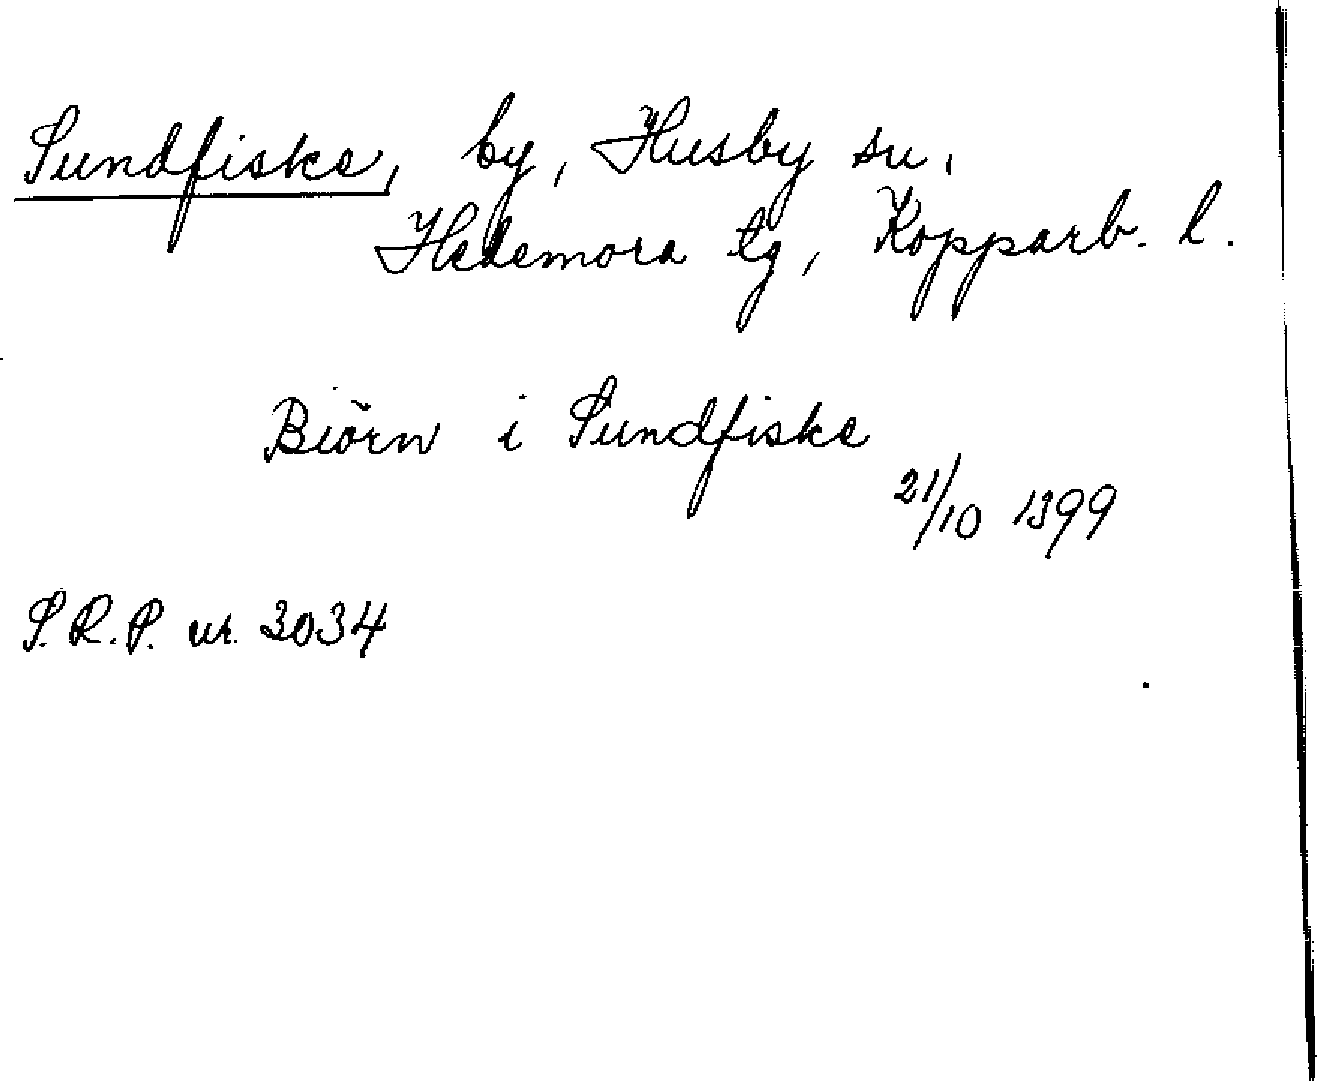 Sundfiske, by, Husby sn,
Hedemora tg, Kopparb. l.
Biörn i Sundfiske
21/10 1399
S.R.P. nr. 3034